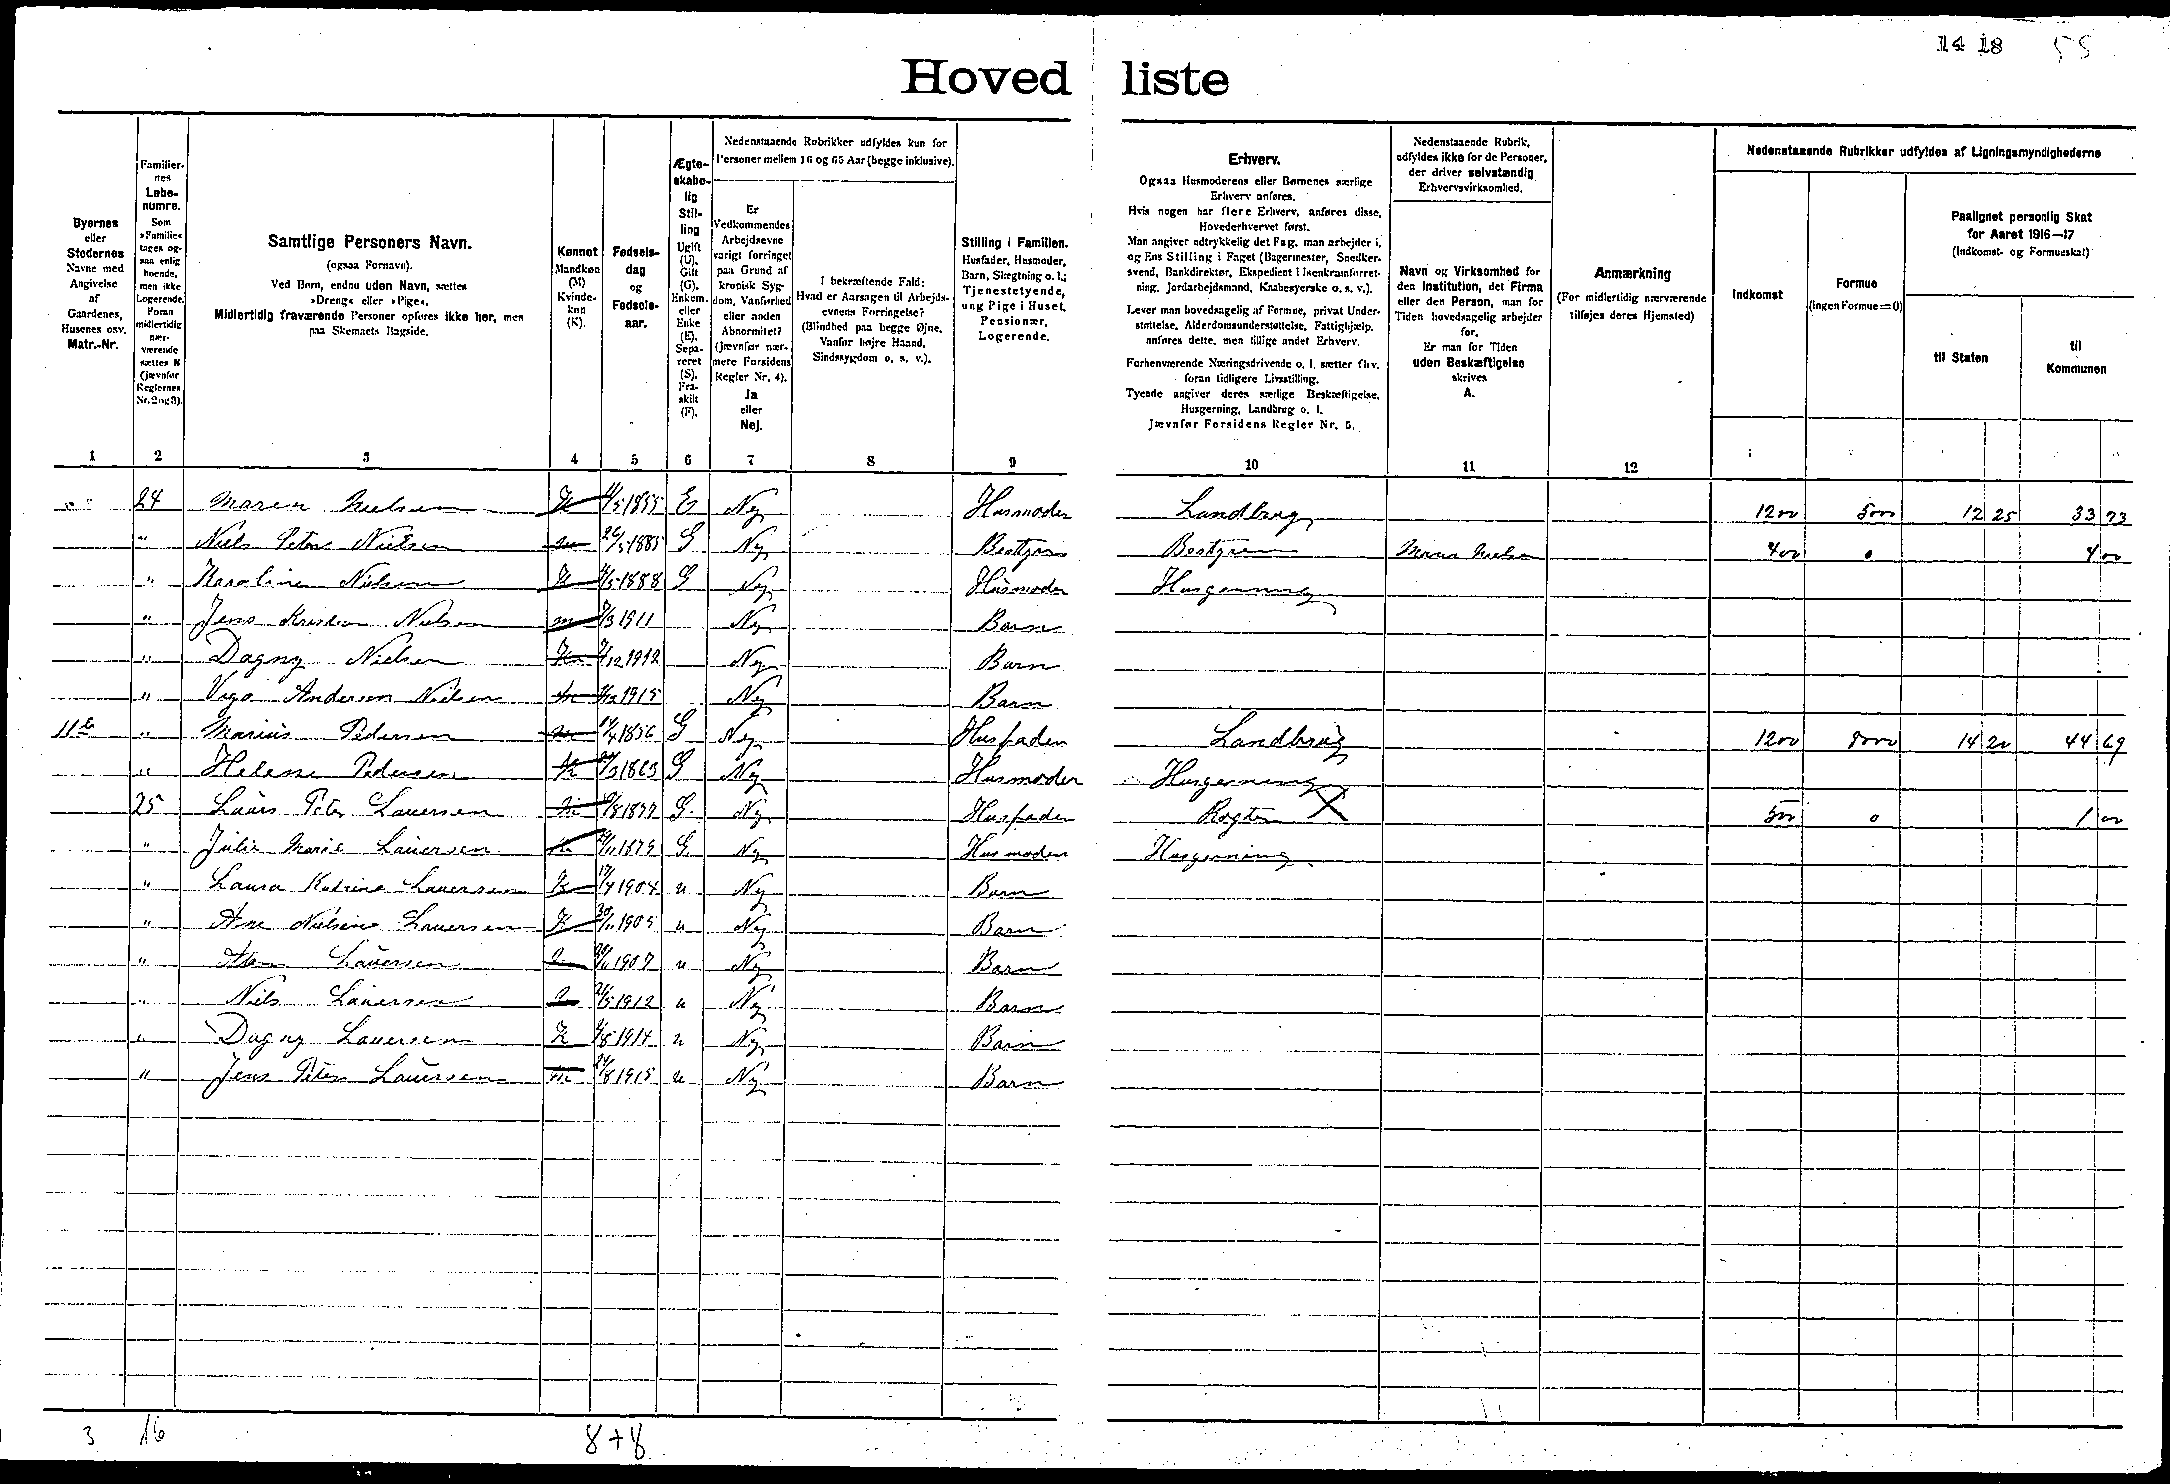 14 18 55
Hoved liste
Byernes eller Stedernes Navne med Angivelse af Gaardenes, Husenes osv. Matr.-Nr.
Familiernes Løbenumre. Som »Familie« tages ogsaa enlig boende, men ikke Logerende. Foran midlertidig nærværende sættes N (jævnfør Reglernes Nr. 2 og 3).
Samtlige Personers Navn.
(ogsaa Fornavn).
Ved Børn, endnu uden Navn, sættes
»Dreng« eller »Pige«.
Midlertidig fraværende Personer opføres ikke her, men
paa Skemaets Bagside.
Kønnet Mandkøn (M) Kvindekøn (K).
Fødselsdag og Fødselsaar.
Ægteskabelig Stilling Ugift (U). Gift (G). Enkem. eller Enke (E). Separeret (S). Fraskilt (F).
Nedenstaaende Rubrikker udfyldes kun for
Personer mellem 16 og 65 Aar (begge inklusive).
Er Vedkommendes Arbejdsevne varigt forringet paa Grund af kronisk Sygdom, Vanførhed eller anden Abnormitet? (jævnfør nærmere Forsidens Regler Nr. 4). Ja eller Nej.
I bekræftende Fald: Hvad er Aarsagen til Arbejdsevnens Forringelse? (Blindhed paa begge Øjne, Vanfør højre Haand, Sindssygdom o. s. v.).
Stilling i Familien. Husfader, Husmoder, Barn, Slægtning o. l.; Tjenestetyende, ung Pige i Huset, Pensionær, Logerende.
Erhverv.
Ogsaa Husmoderens eller Børnenes særlige
Erhverv anføres.
Hvis nogen har flere Erhverv, anføres disse,
Hovederhvervet først.
Man angiver udtrykkelig det Fag, man arbejder i,
og Ens Stilling i Faget (Bagermester, Snedkersvend, Bankdirektør, Ekspedient i Isenkramforretning, Jordarbejdsmand, Knabesyerske o. s. v.).
Lever man hovedsagelig af Formue, privat Understøttelse, Alderdomsunderstøttelse, Fattighjælp,
anføres dette, men tillige andet Erhverv.
Forhenværende Næringsdrivende o. l. sætter fhv.
foran tidligere Livsstilling.
Tyende angiver deres særlige Beskæftigelse,
Husgerning, Landbrug o. l.
Jævnfør Forsidens Regler Nr. 5.
Nedenstaaende Rubrik, udfyldes ikke for de Personer, der driver selvstændig Erhvervsvirksomhed.
Navn og Virksomhed for den Institution, det Firma eller den Person, man for Tiden hovedsagelig arbejder for.
Er man for Tiden uden Beskæftigelse skrives A.
Anmærkning
(For midlertidig nærværende tilføjes deres Hjemsted)
Nedenstaaende Rubrikker udfyldes af Ligningsmyndighederne
Indkomst
Formue (ingen Formue = 0)
Paalignet personlig Skat for Aaret 1916—17 (Indkomst- og Formueskat)
til Staten
til Kommunen
1 2 3 4 5 6 7 8 9 10 11 12
" " 24 Maren Nielsen K /5 1855 E Nej Husmoder Landbrug 1200 5000 12 25 33 73
" Niels Peter Nielsen m 26/5 1885 G Nej Bestyrer Bestyrer Maren Nielsen 400 0 4 00
" Karoline Nielsen K /5 1888 G Nej Husmoder Husgerning
" Jens Kristian Nielsen m /3 1911 Nej Barn
" Dagny Nielsen K /12 1912 Nej Barn
" Vigo Anderson Nielsen m /12 1915 Nej Barn
11 b " Marius Pedersen m /4 1856 G Nej Husfader Landbrug 1200 8000 14 20 44 69
" Helene Pedersen K /3 1863 G Nej Husmoder Husgerning
25 Laurs Peter Lauersen m /8 1877 G. Nej Husfader Røgter X 500 0 1 00
" Julie Marie Lauersen K /11 1879 G. Nej Husmoder Husgerning
" Laura Katrine Lauersen K 17/4 1904 u Nej Barn
" Ane Nielsine Lauersen K 20/11 1905 u Nej Barn
" Lauersen 1907 u Nej Barn
" Niels Lauersen 21/5 1912 u Nej Barn
" Dagny Lauersen K /8 1914 u Nej Barn
" Jens Peter Lauersen m 24/8 1915 u Nej Barn
3 16 8+8